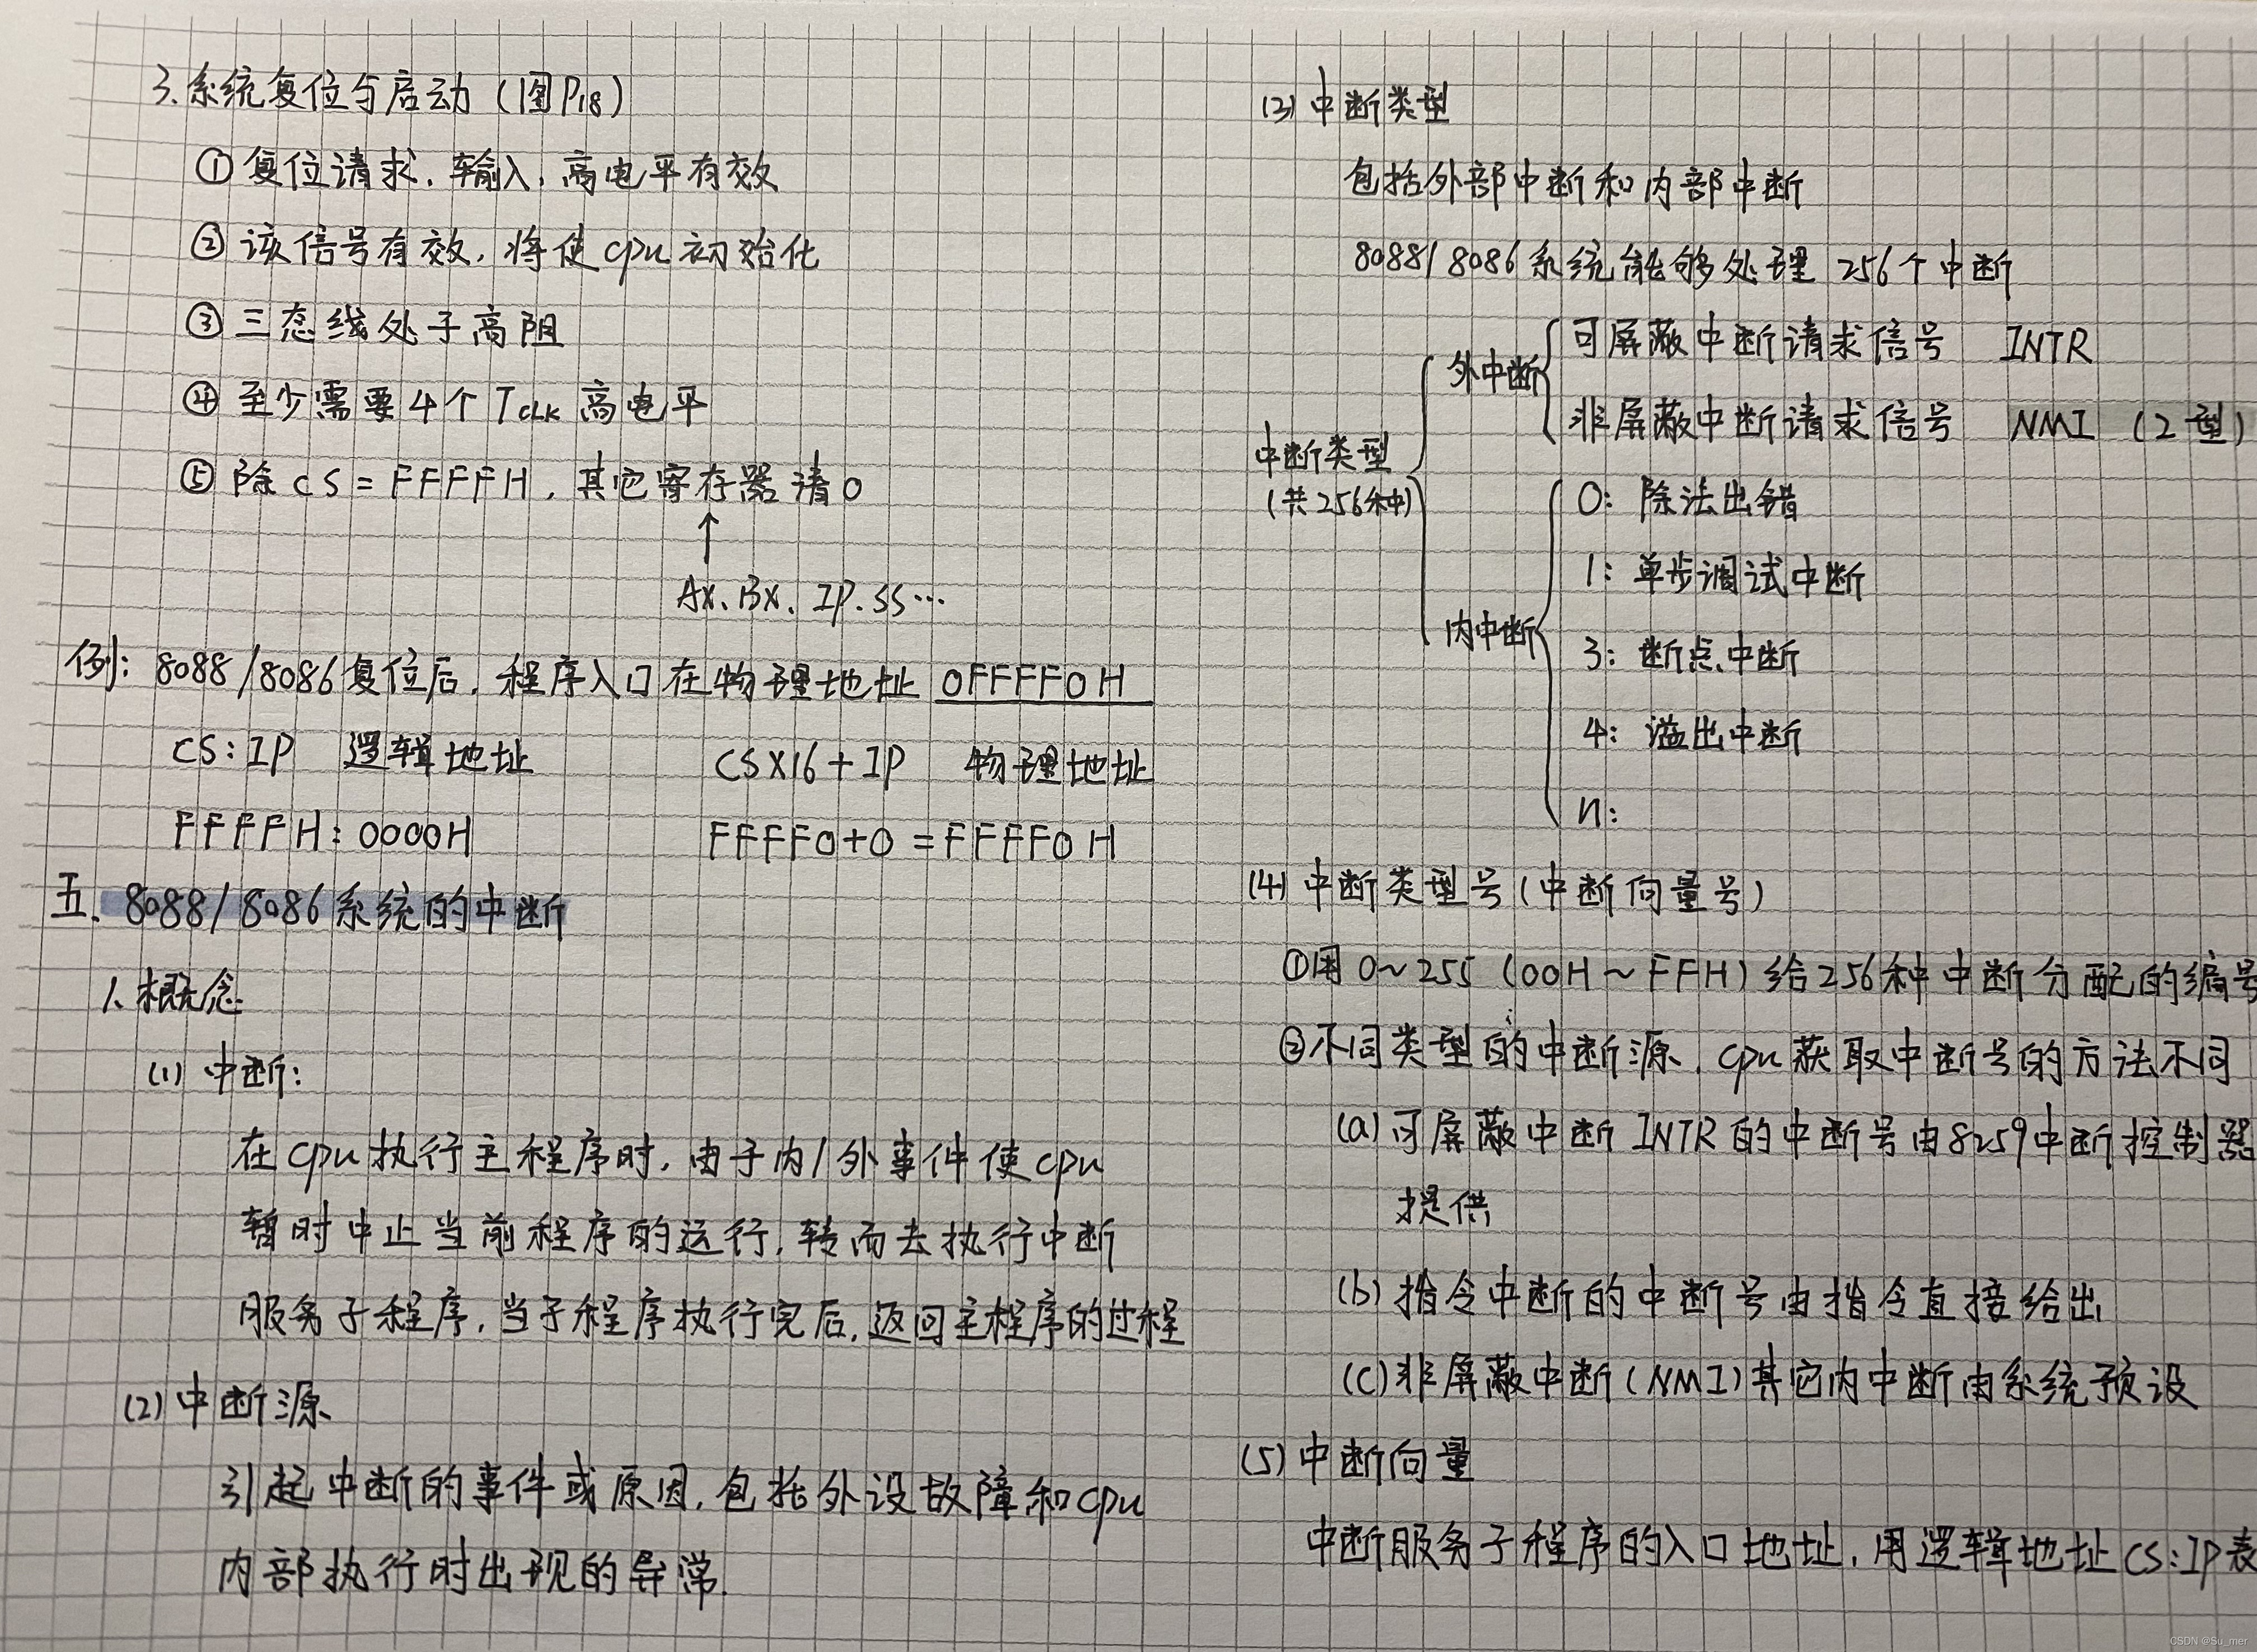 3.系统复位与启动（图P18）
①复位请求，输入，高电平有效
②该信号有效，将使cpu初始化
③三态线处于高阻
④至少需要4个TCLK高电平
⑤除CS=FFFFH，其它寄存器清0
↑
AX、BX、IP.SS…
例：8088/8086复位后，程序入口在物理地址 0FFFF0H
CS:IP 逻辑地址 CSX16+IP 物理地址
FFFFH:0000H FFFF0+0=FFFF0H
五、8088/8086系统的中断
1.概念
(1)中断：
在cpu执行主程序时，由于内/外事件使cpu
暂时中止当前程序的运行，转而去执行中断
服务子程序，当子程序执行完后，返回主程序的过程
(2)中断源
引起中断的事件或原因，包括外设故障和cpu
内部执行时出现的异常.
(3)中断类型
包括外部中断和内部中断
8088/8086系统能够处理256个中断
可屏蔽中断请求信号 INTR
外中断
非屏蔽中断请求信号 NMI（2型）
中断类型
（共256种）
0：除法出错
1：单步调试中断
内中断
3：断点中断
4：溢出中断
n：
(4)中断类型号（中断向量号）
①用0~255（00H~FFH）给256种中断分配的编号
②不同类型的中断源，cpu获取中断号的方法不同
(a)可屏蔽中断INTR的中断号由8259中断控制器
提供
(b)指令中断的中断号由指令直接给出
(c)非屏蔽中断(NMI)其它内中断由系统预设
(5)中断向量
中断服务子程序的入口地址，用逻辑地址CS:IP表
CSDN @Su_mer